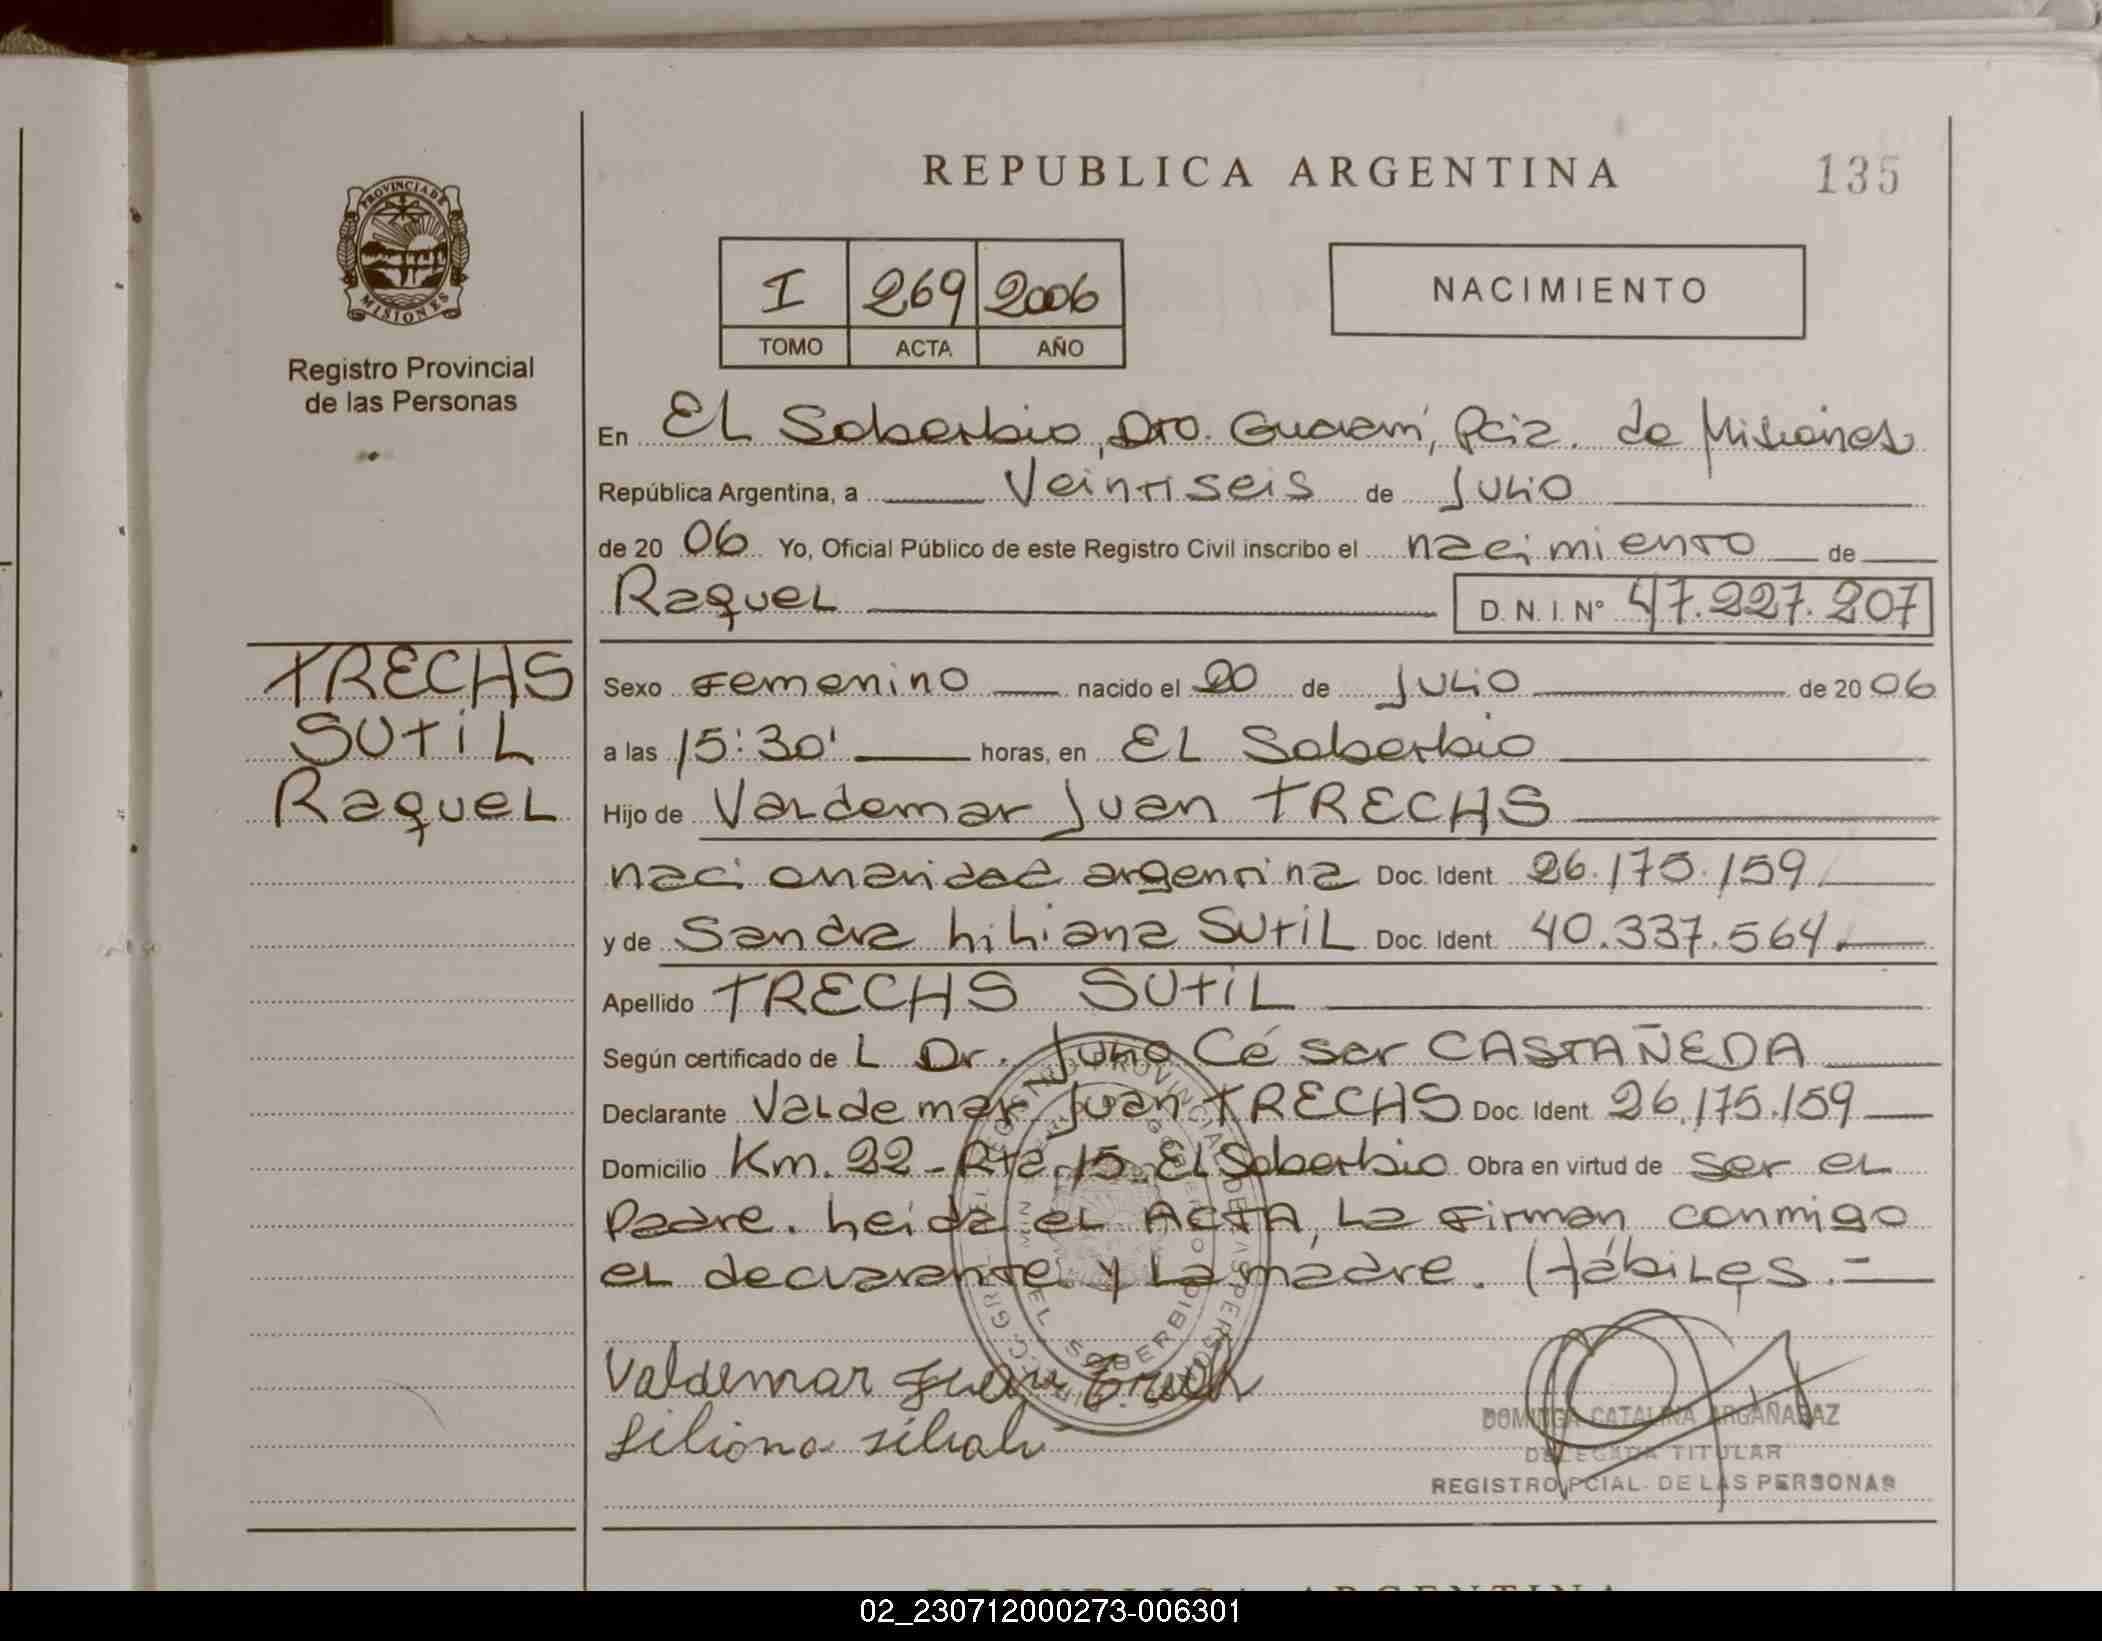 REPUBLICA ARGENTINA
135
PROVINCIA DE
MISIONES
Registro Provincial
de las Personas
I 269 2006
TOMO ACTA AÑO
NACIMIENTO
En EL Soberbio, Dto. Guaraní, Pcia. de Misiones
República Argentina, a Veintiseis de Julio
de 20 06 Yo, Oficial Público de este Registro Civil inscribo el nacimiento de
Raquel D. N. I. N° 47.227.207
TRECHS
SUtiL
RaqueL
Sexo Femenino nacido el 20 de Julio de 20 06
a las 15:30' horas, en EL Soberbio
Hijo de Valdemar Juan TRECHS
nacionalidad argentina Doc. Ident. 26.175.159
y de Sandra Liliana SUtiL Doc. Ident. 40.337.564.
Apellido TRECHS SUtiL
Según certificado de L Dr. Julio César CASTAÑEDA
Declarante Valdemar Juan TRECHS Doc. Ident. 26.175.159
Domicilio Km. 22 - Rta. 15. El Soberbio Obra en virtud de ser el
Padre. Leida el ACTA, La Firman conmigo
el declarante y La madre. Hábiles.=
Valdemar Juan
Liliana
EL SOBERBIO
DOMINGA CATALINA ARGAÑARAZ
DELEGADA TITULAR
REGISTRO PCIAL. DE LAS PERSONAS
REPUBLICA ARGENTINA
02_230712000273-006301